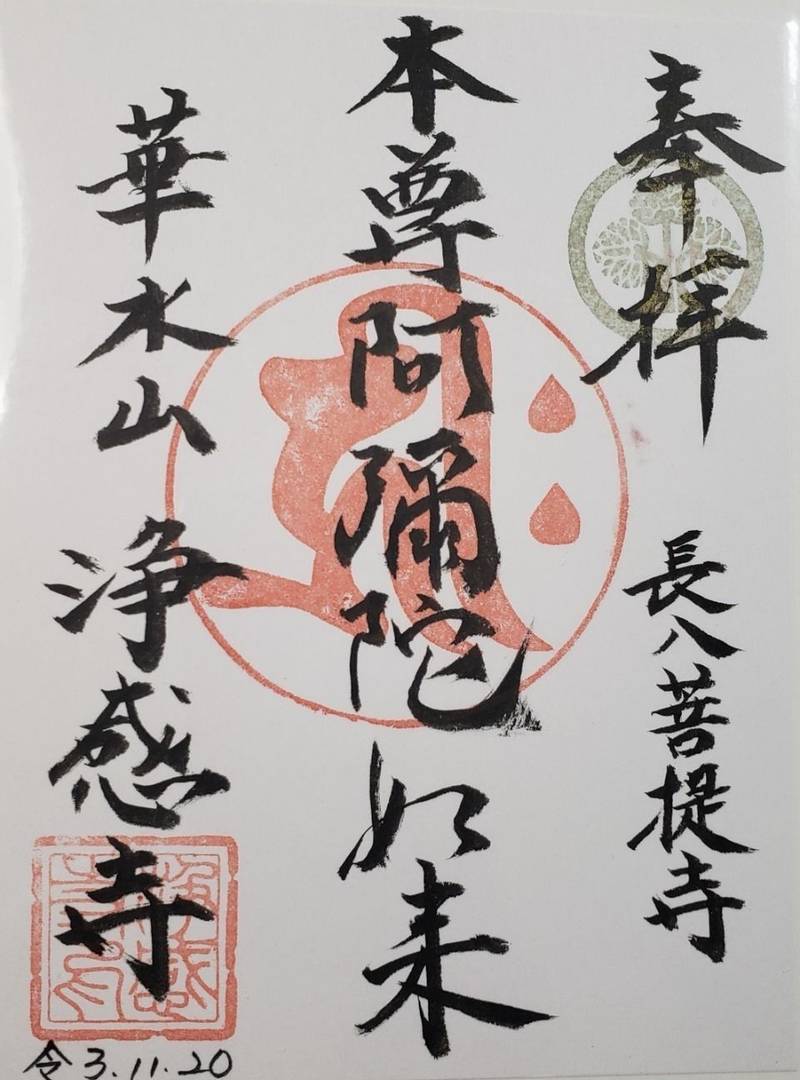 奉拝
長八菩提寺
本尊阿彌陀如来
華水山 浄感寺
令3.11.20